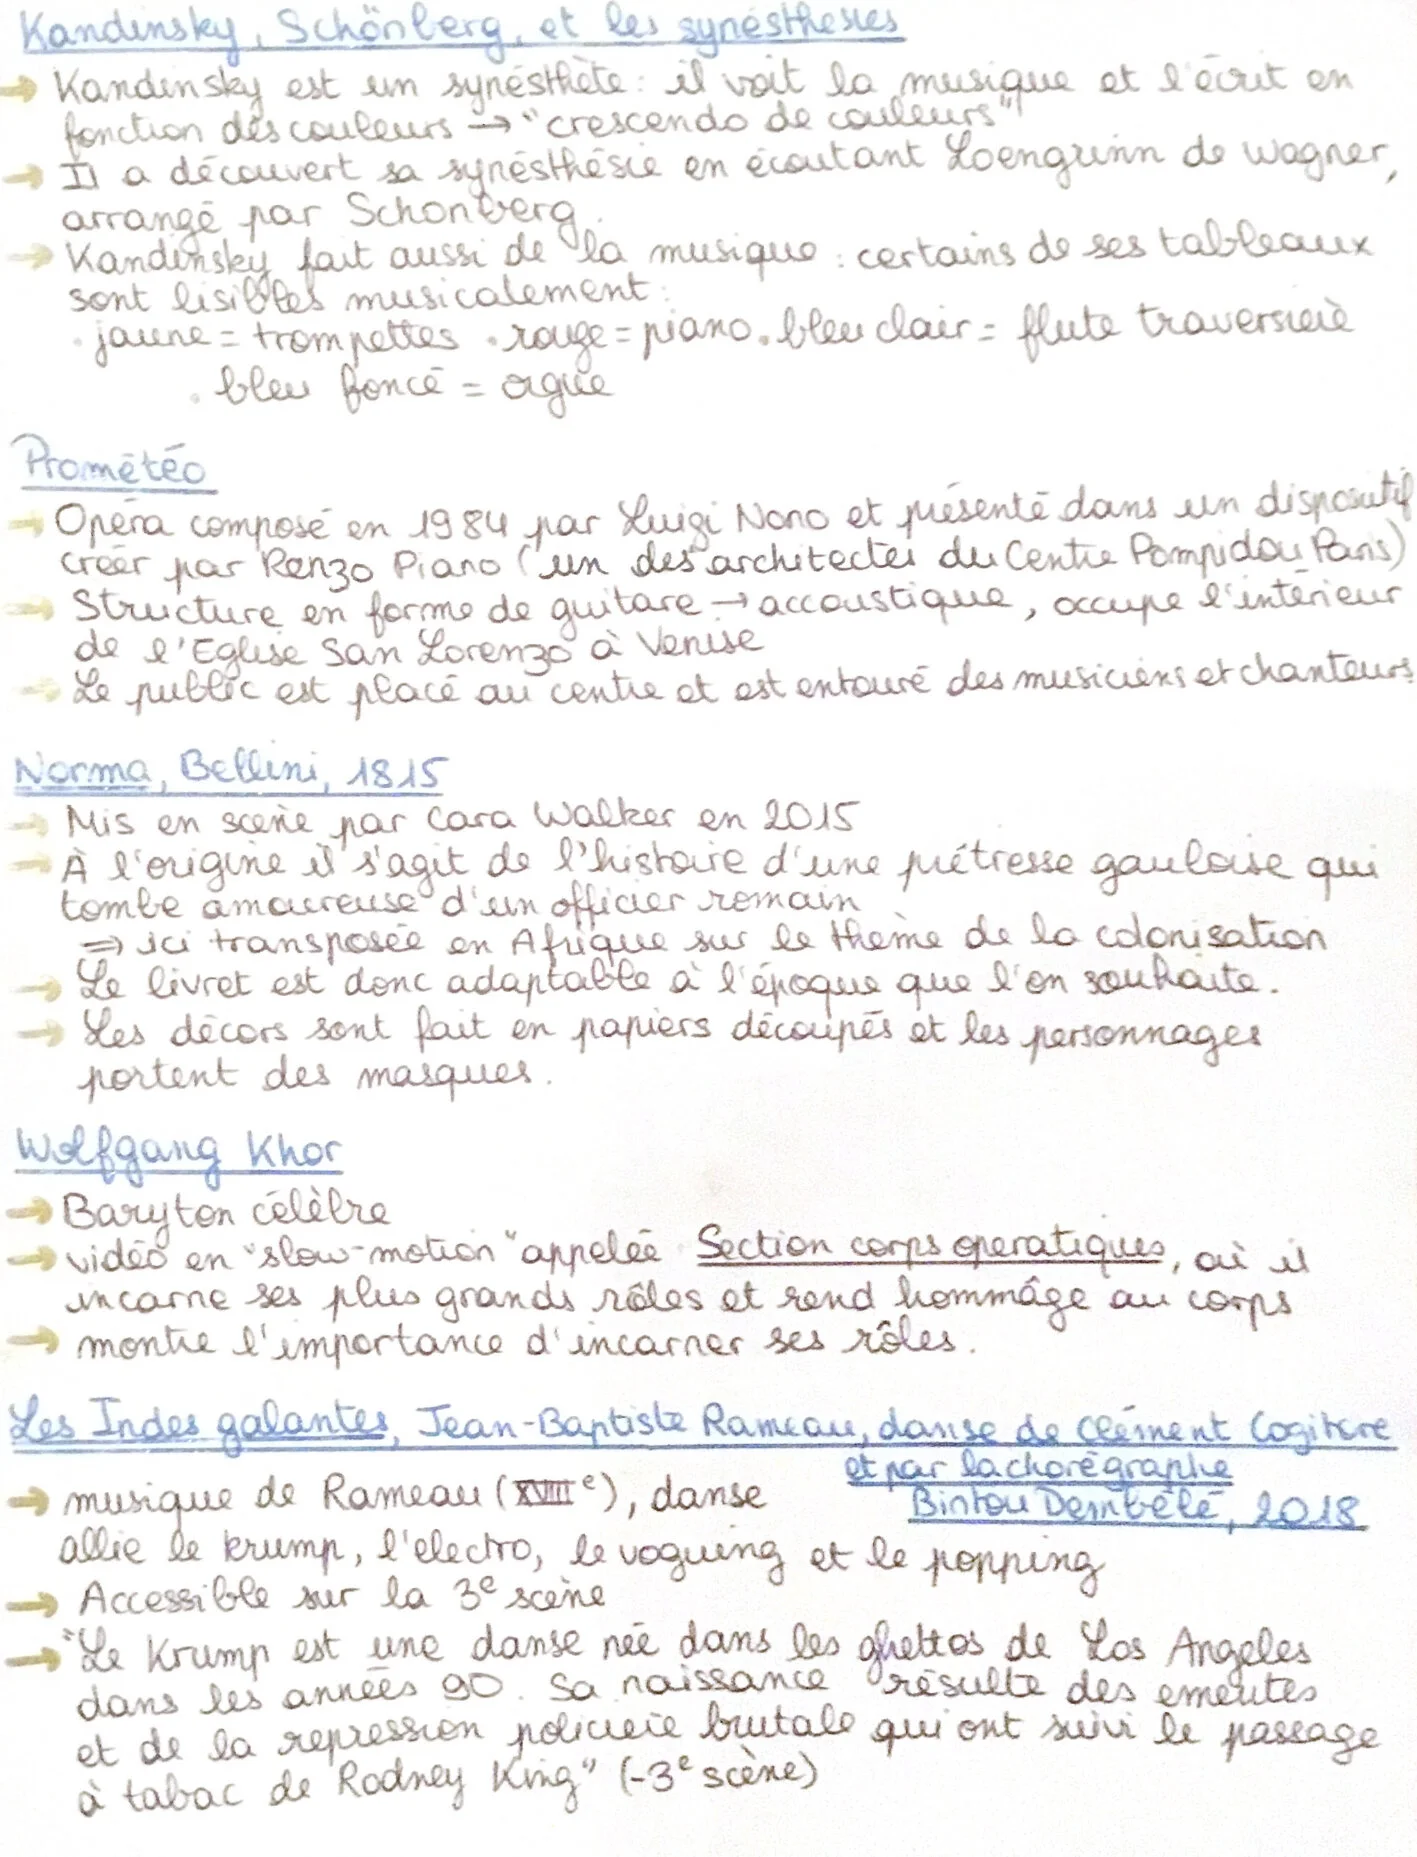 Kandinsky, Schönberg, et les synésthésies
→ Kandinsky est un synésthète : il voit la musique et l'écrit en
fonction des couleurs → "crescendo de couleurs"
→ Il a découvert sa synésthésie en écoutant Loengrinn de Wagner,
arrangé par Schonberg.
→ Kandinsky fait aussi de la musique : certains de ses tableaux
sont lisibles musicalement :
. jaune = trompettes . rouge = piano . bleu clair = flute traversière
. bleu foncé = orgue
Prométéo
→ Opéra composé en 1984 par Luigi Nono et présenté dans un dispositif
créer par Renzo Piano (un des architectes du Centre Pompidou Paris)
→ Structure en forme de guitare → accoustique, occupe l'intérieur
de l'Eglise San Lorenzo à Venise
→ Le public est placé au centre et est entouré des musiciens et chanteurs
Norma, Bellini, 1815
→ Mis en scène par Cara Walker en 2015
→ À l'origine il s'agit de l'histoire d'une prêtresse gauloise qui
tombe amoureuse d'un officier romain
⇒ ici transposée en Afrique sur le thème de la colonisation
→ Le livret est donc adaptable à l'époque que l'on souhaite.
→ Les décors sont fait en papiers découpés et les personnages
portent des masques.
Wolfgang Khor
→ Baryton célèbre
→ vidéo en "slow-motion" appelée Section corps operatiques, où il
incarne ses plus grands rôles et rend hommâge au corps
→ montre l'importance d'incarner ses rôles.
Les Indes galantes, Jean-Baptiste Rameau, danse de Clément Cogitore
et par la chorégraphe
Bintou Dembélé, 2018
→ musique de Rameau (XVIIIe), danse
allie le krump, l'electro, le voguing et le popping
→ Accessible sur la 3e scène
→ "Le Krump est une danse née dans les ghettos de Los Angeles
dans les années 90. Sa naissance résulte des émeutes
et de la repression policière brutale qui ont suivi le passage
à tabac de Rodney King" (-3e scène)